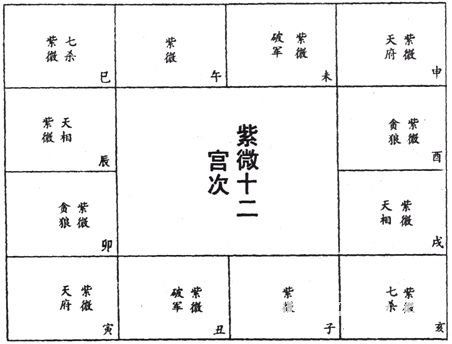 七杀
紫微
巳
紫微
午
紫微
破军
未
紫微
天府
申
天相
紫微
辰
紫微十二
宫次
紫微
贪狼
酉
紫微
贪狼
卯
紫微
天相
戌
紫微
天府
寅
紫微
破军
丑
紫微
子
紫微
七杀
亥